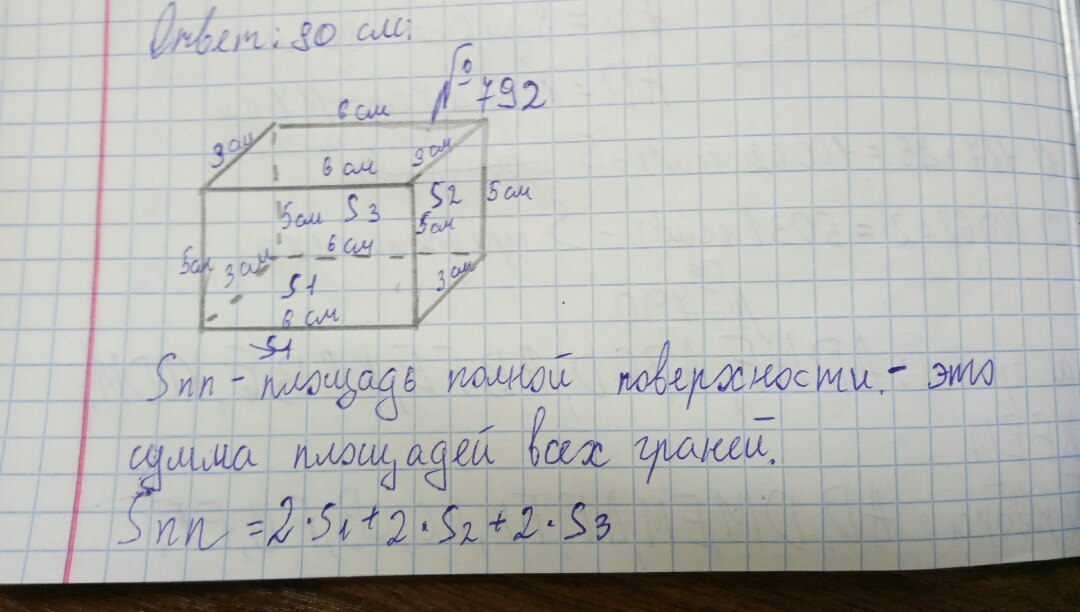 Ответ: 90 см.
№ 792
6 см
3 см
6 см
3 см
5 см S3
S2
5 см
5 см
6 см
5 см
3 см
3 см
S1
6 см
S1
Sпп - площадь полной поверхности. - это
сумма площадей всех граней.
Sпп = 2·S1 + 2·S2 + 2·S3